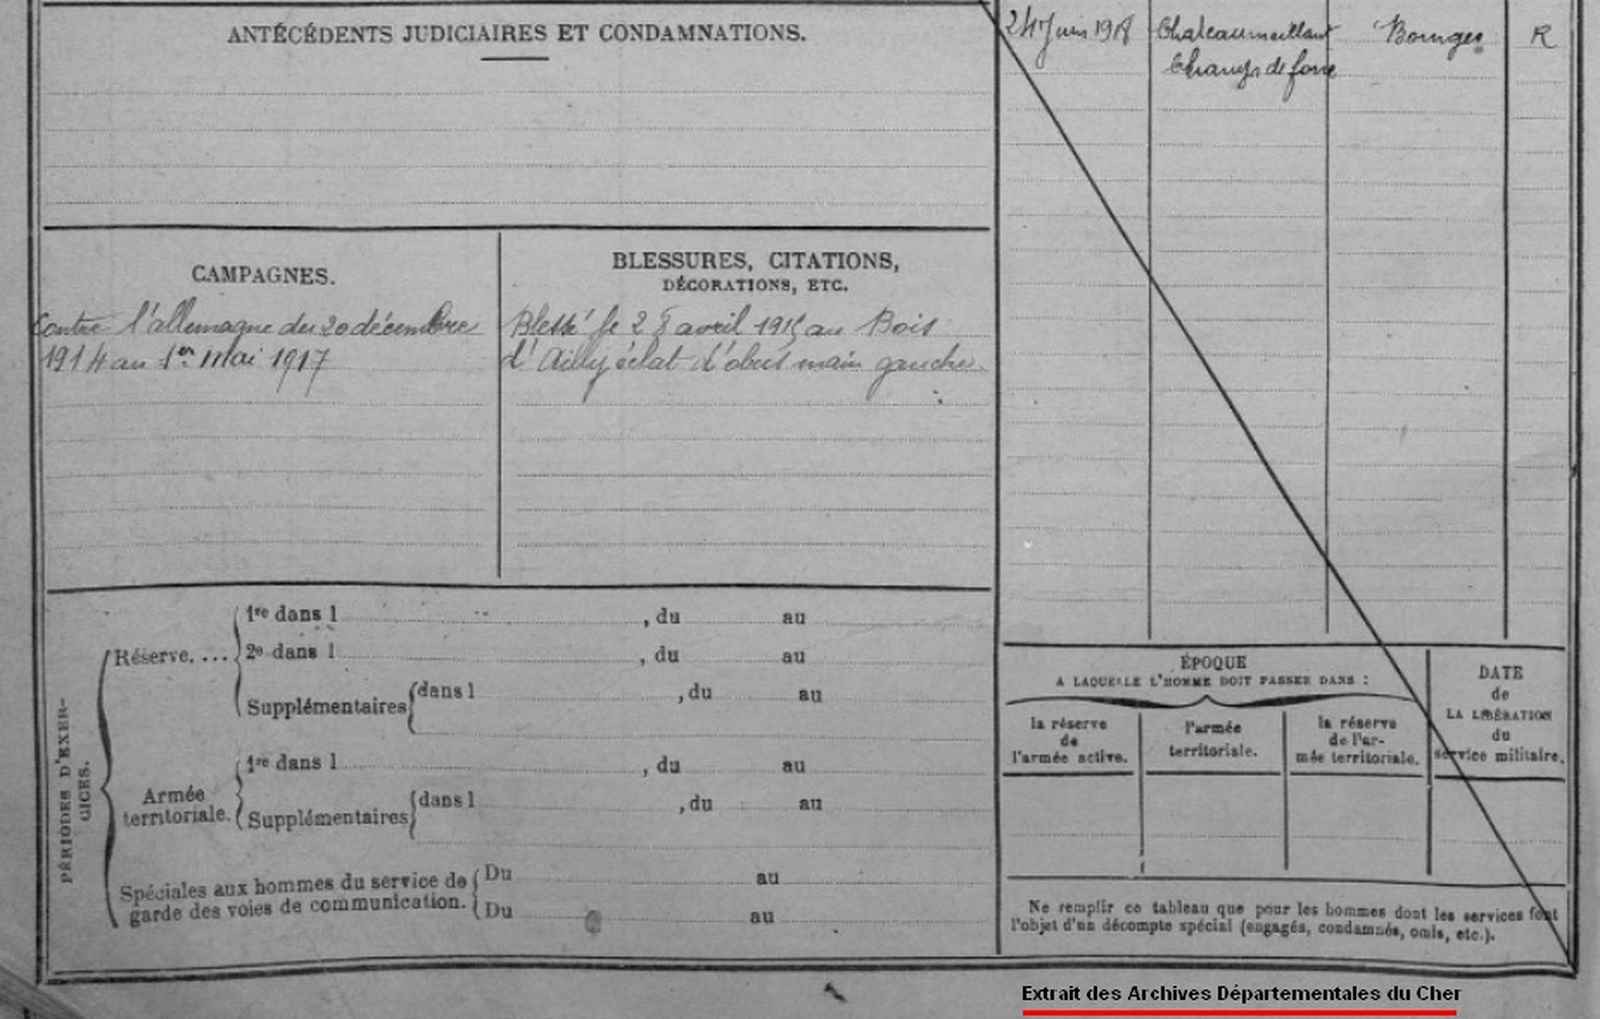 ANTÉCÉDENTS JUDICIAIRES ET CONDAMNATIONS.
24 Juin 1918 Chateaumeillant Bourges R
Champ de foire
CAMPAGNES.
Contre l'allemagne du 20 décembre
1914 au 1er mai 1917
BLESSURES, CITATIONS,
DÉCORATIONS, ETC.
Blessé le 28 avril 1915 au Bois
d'Ailly éclat d'obus main gauche.
PÉRIODES D'EXER-
CICES.
Réserve....
1re dans l , du au
2e dans l , du au
Supplémentaires dans l , du au
Armée
territoriale.
1re dans l , du au
Supplémentaires dans l , du au
Spéciales aux hommes du service de
garde des voies de communication.
Du au
Du au
ÉPOQUE
A LAQUELLE L'HOMME DOIT PASSER DANS :
la réserve
de
l'armée active.
l'armée
territoriale.
la réserve
de l'ar-
mée territoriale.
DATE
de
LA LIBÉRATION
du
service militaire.
Ne remplir ce tableau que pour les hommes dont les services font
l'objet d'un décompte spécial (engagés, condamnés, omis, etc.).
Extrait des Archives Départementales du Cher